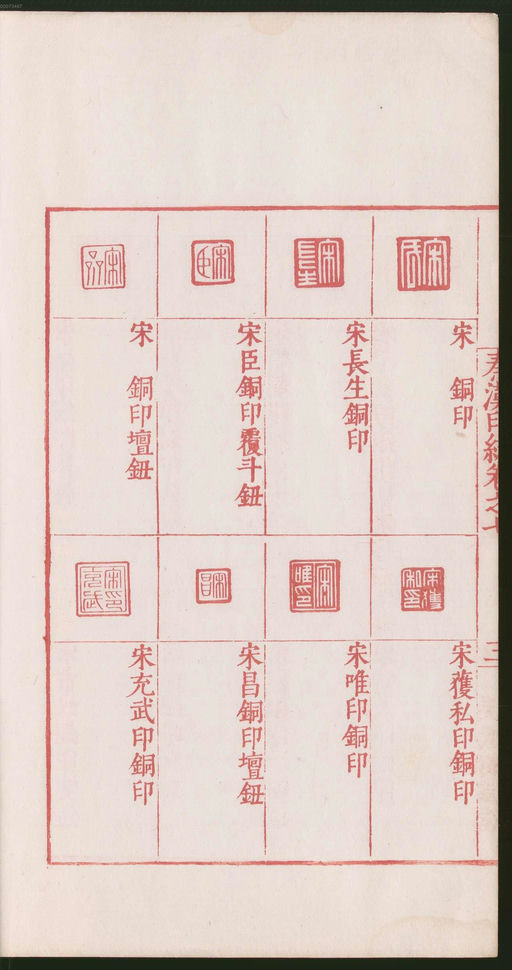 宋　銅印
宋長生銅印
宋臣銅印覆斗鈕
宋　銅印壇鈕
宋獲私印銅印
宋唯印銅印
宋昌銅印壇鈕
宋充武印銅印
00073467